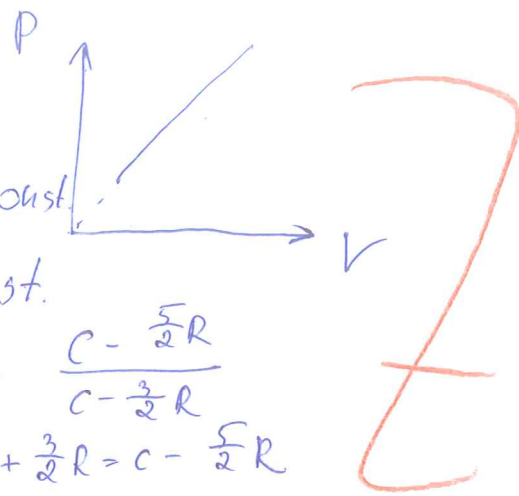 P
onst.
V
st.
C - 5/2 R
C - 3/2 R
+ 3/2 R = C - 5/2 R